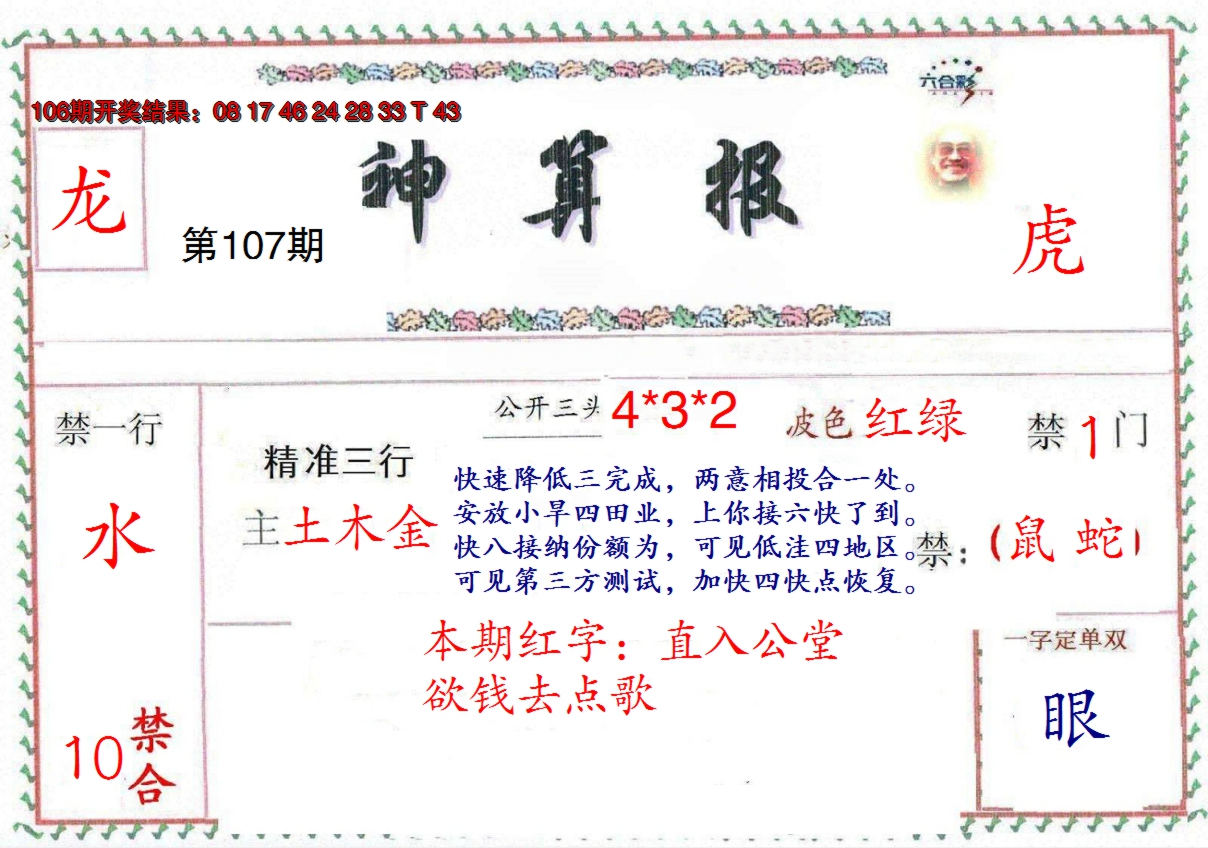 六合彩
106期开奖结果：08 17 46 24 28 33 T 43
神算报
龙
第107期
虎
禁一行
水
10禁合
精准三行
主土木金
公开三头 4*3*2
波色 红绿
禁1门
快速降低三完成，两意相投合一处。
安放小旱四田业，上你接六快了到。
快八接纳份额为，可见低洼四地区。
可见第三方测试，加快四快点恢复。
禁：（鼠 蛇）
本期红字：直入公堂
欲钱去点歌
一字定单双
眼